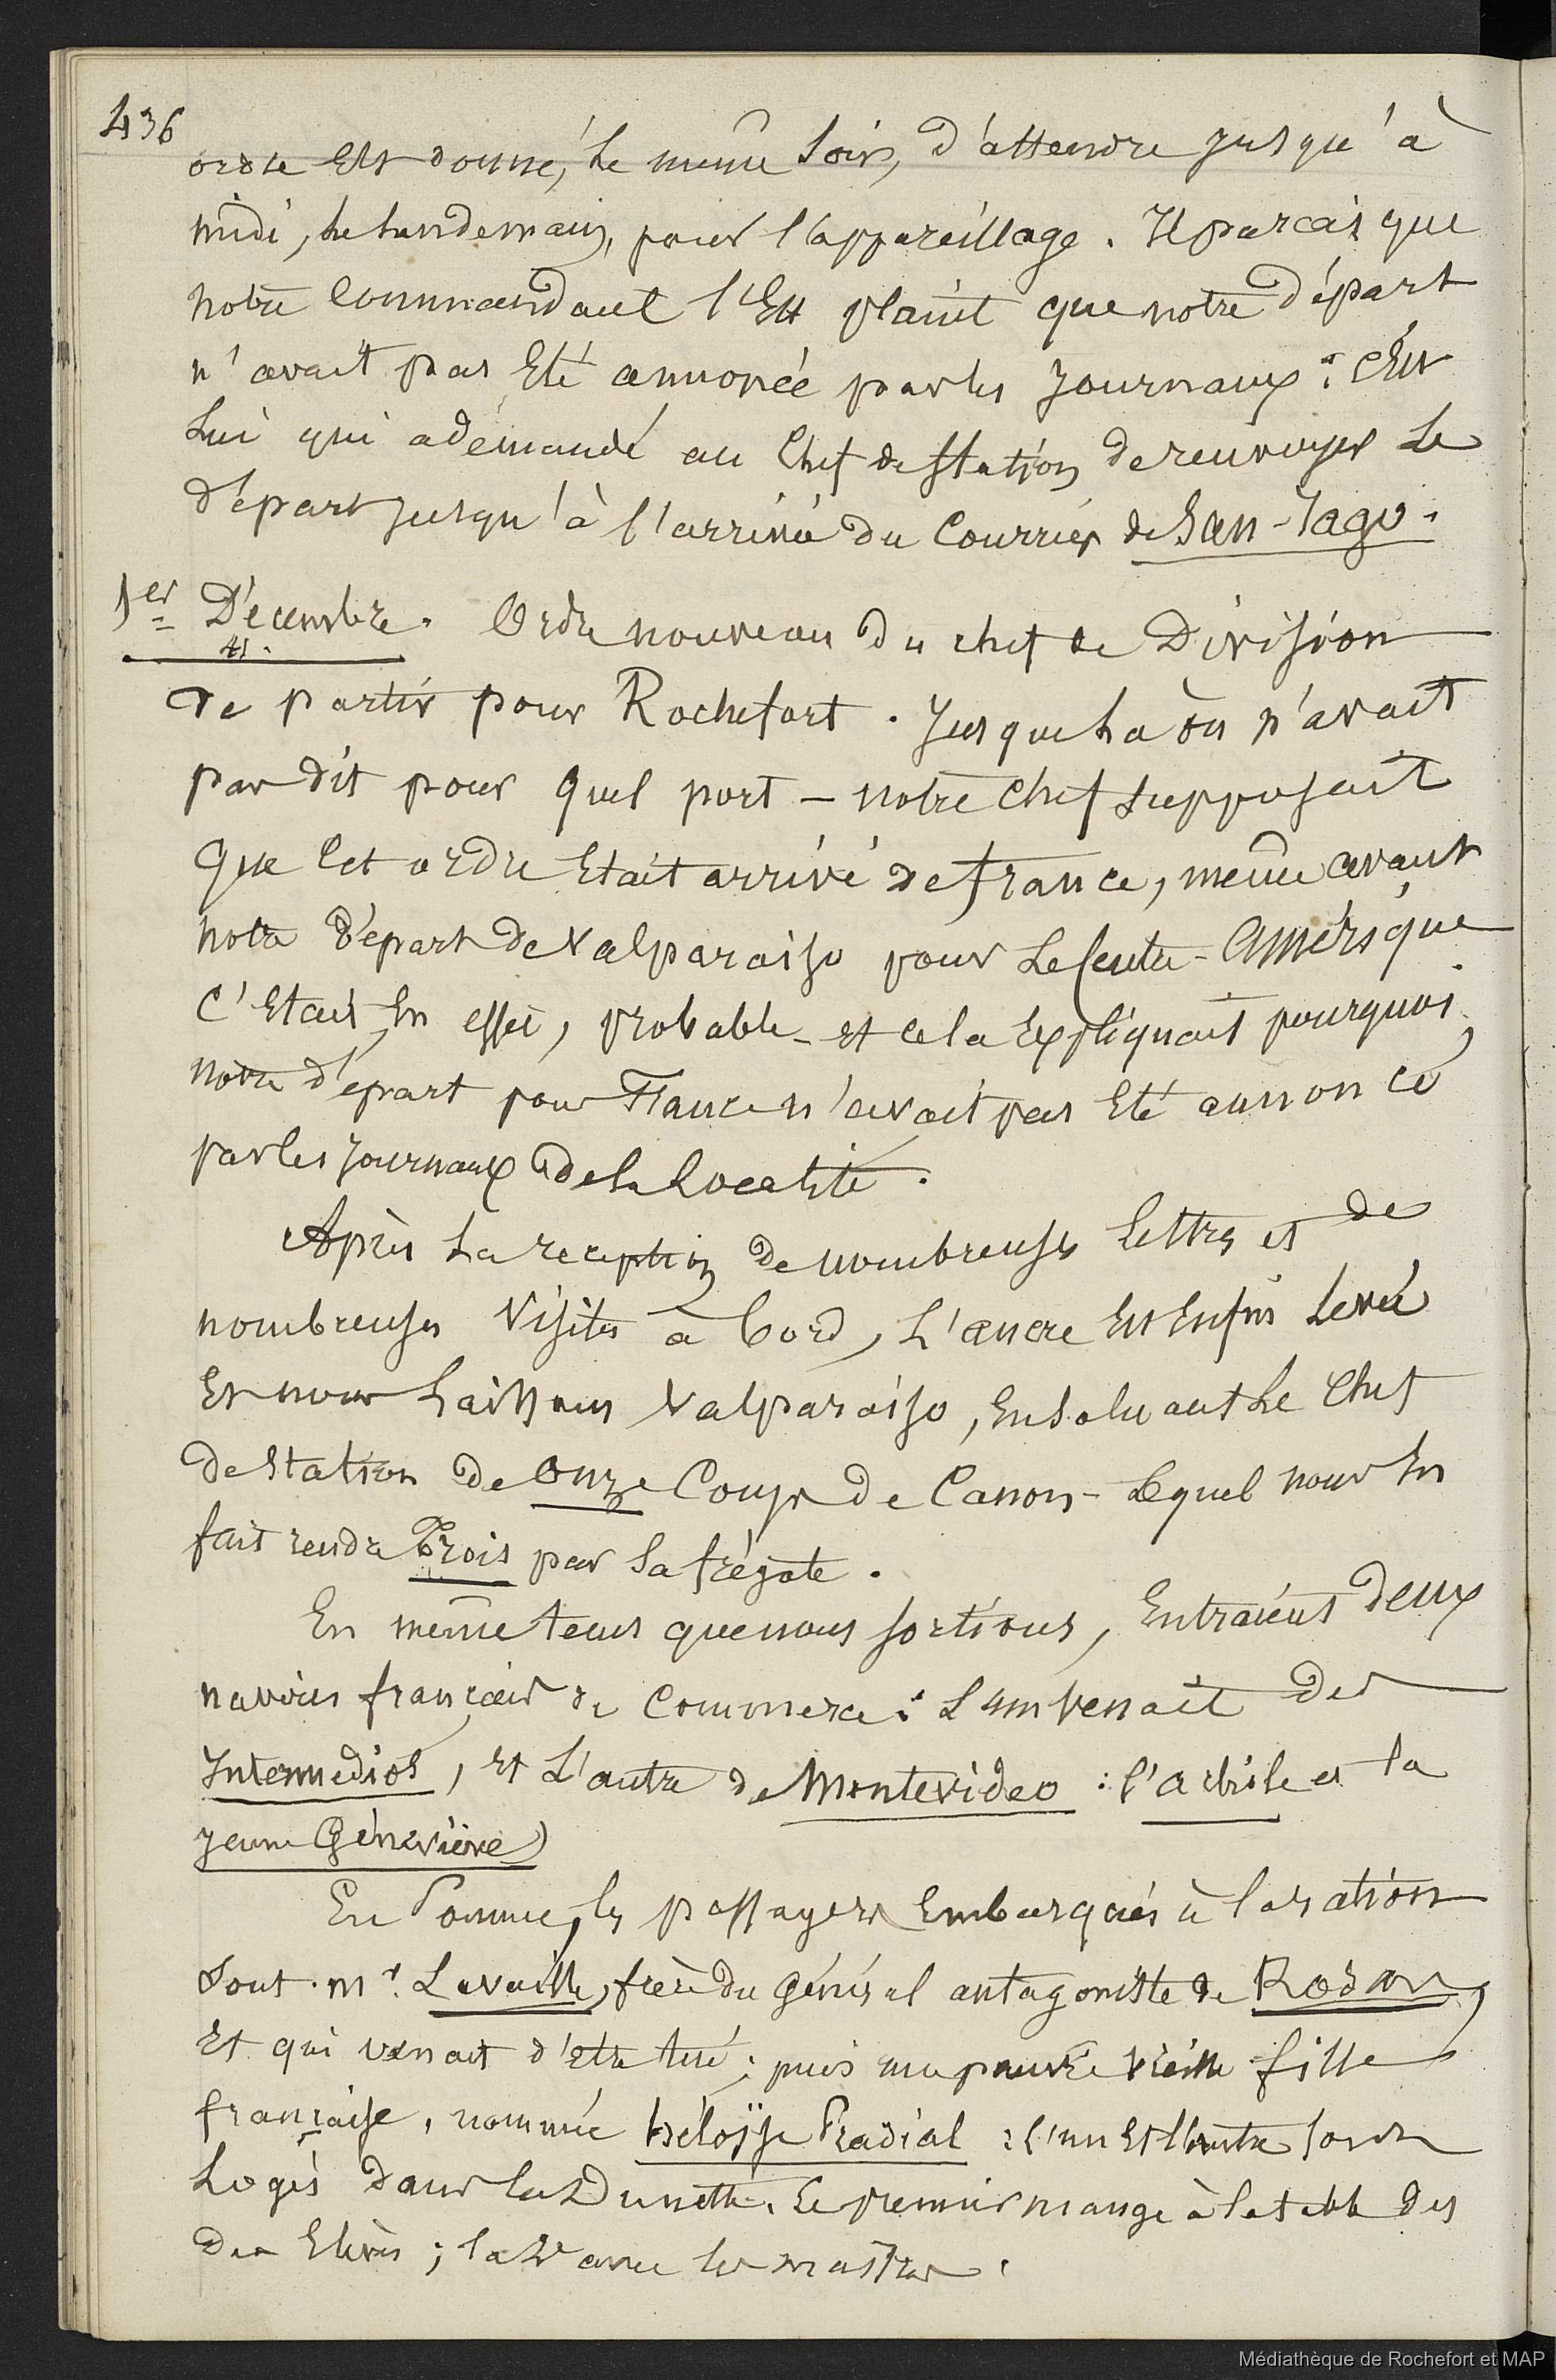 436
ordre est donné, le même soir, d'attendre jusqu'à
midi, le lendemain, pour l'appareillage. Il paraît que
notre Commandant s'est plaint que notre départ
n'avait pas été annoncé par les journaux : c'est
lui qui a demandé au Chef de Station de renvoyer le
départ jusqu'à l'arrivée du Courrier de San-Iago.
1er Décembre. Ordre nouveau du chef de Division
41.
de partir pour Rochefort. Jusque là on n'avait
pas dit pour quel port – notre chef supposait
que cet ordre était arrivé de france, même avant
notre départ de Valparaiso pour le Centre-Amérique
C'était, en effet, probable – et cela expliquait pourquoi
notre départ pour France n'avait pas été annoncé
par les journaux de la localité.
Après la reception de nombreuses lettres et de
nombreuses visites à bord, l'ancre est enfin levée
et nous laissons Valparaiso, en saluant le chef
de Station de onze Coups de Canon – lequel nous en
fait rendre trois par sa frégate.
En même tems que nous sortions, entraient deux
navires français de commerce : l'un venait des
Intermedios, et l'autre de Montevideo : l'Achile et la
jeune Géneviève
En somme, les passagers embarqués à la ration
sont : mr. Lavaille, frère du Général antagoniste de Rosas,
et qui venait d'être tué ; puis une pauvre vieille fille
française, nommée héloïse Pradial : l'un et l'autre sont
logés dans la Dunette. Le premier mange à la table des
des Elèves ; la 2e avec les maîtres.
Médiathèque de Rochefort et MAP